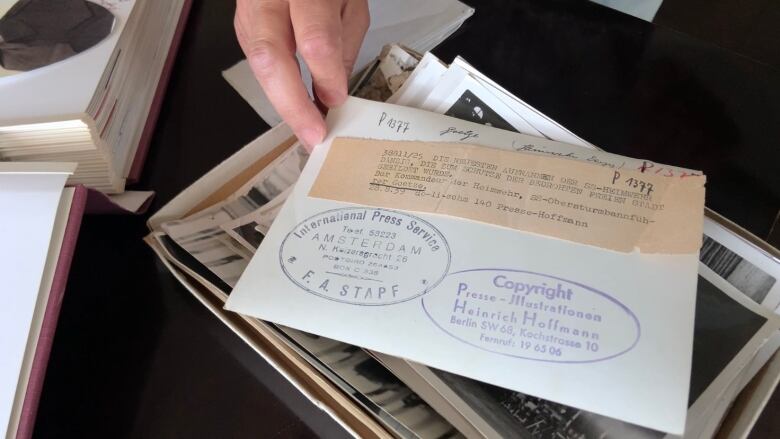 P 1377
Goetze
P 1377
P 1377
38811/25 DIE NEUESTEN AUFNAHMEN DER SS-HEIMWEHR
DANZIG, DIE ZUM SCHUTZE DER BEDROHTEN FREIEN STADT
GEBILDET WURDE.
Der Kommandeur der Heimwehr, SS-Obersturmbannfüh-
rer Goetze.
26.8.39 do-li-schm 140 Presse-Hoffmann
International Press Service
Telef 53223
AMSTERDAM
N. Keizersgracht 26
POSTGIRO
BOX C 336
F. A. STAPF
Copyright
Presse-Illustrationen
Heinrich Hoffmann
Berlin SW 68, Kochstrasse 10
Fernruf: 19 65 06